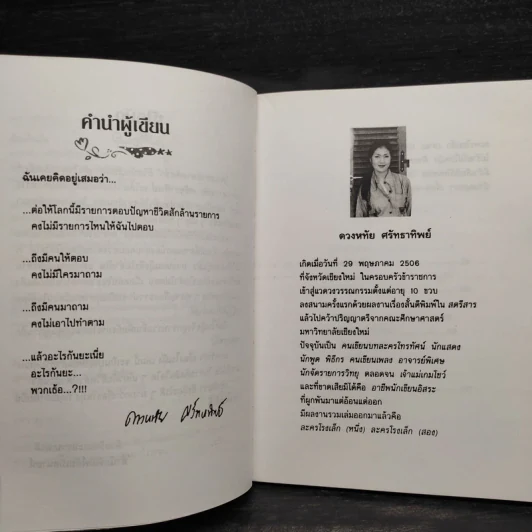 คำนำผู้เขียน
ฉันเคยคิดอยู่เสมอว่า...
...ต่อให้โลกนี้มีรายการตอบปัญหาชีวิตสักล้านรายการ
คงไม่มีรายการไหนให้ฉันไปตอบ
...ถึงมีคนให้ตอบ
คงไม่มีใครมาถาม
...ถึงมีคนมาถาม
คงไม่เอาไปทำตาม
...แล้วอะไรกันยะเนี่ย
อะไรกันยะ...
พวกเธอ...?!!!
ดวงหทัย ศรัทธาทิพย์
ดวงหทัย ศรัทธาทิพย์
เกิดเมื่อวันที่ 29 พฤษภาคม 2506
ที่จังหวัดเชียงใหม่ ในครอบครัวข้าราชการ
เข้าสู่แวดวงวรรณกรรมตั้งแต่อายุ 10 ขวบ
ลงสนามครั้งแรกด้วยผลงานเรื่องสั้นตีพิมพ์ใน สตรีสาร
แล้วไปคว้าปริญญาตรีจากคณะศึกษาศาสตร์
มหาวิทยาลัยเชียงใหม่
ปัจจุบันเป็น คนเขียนบทละครโทรทัศน์ นักแสดง
นักพูด พิธีกร คนเขียนเพลง อาจารย์พิเศษ
นักจัดรายการวิทยุ ตลอดจน เจ้าแม่เกมโชว์
และที่ขาดเสียมิได้คือ อาชีพนักเขียนอิสระ
ที่ผูกพันมาแต่อ้อนแต่ออก
มีผลงานรวมเล่มออกมาแล้วคือ
ละครโรงเล็ก (หนึ่ง) ละครโรงเล็ก (สอง)